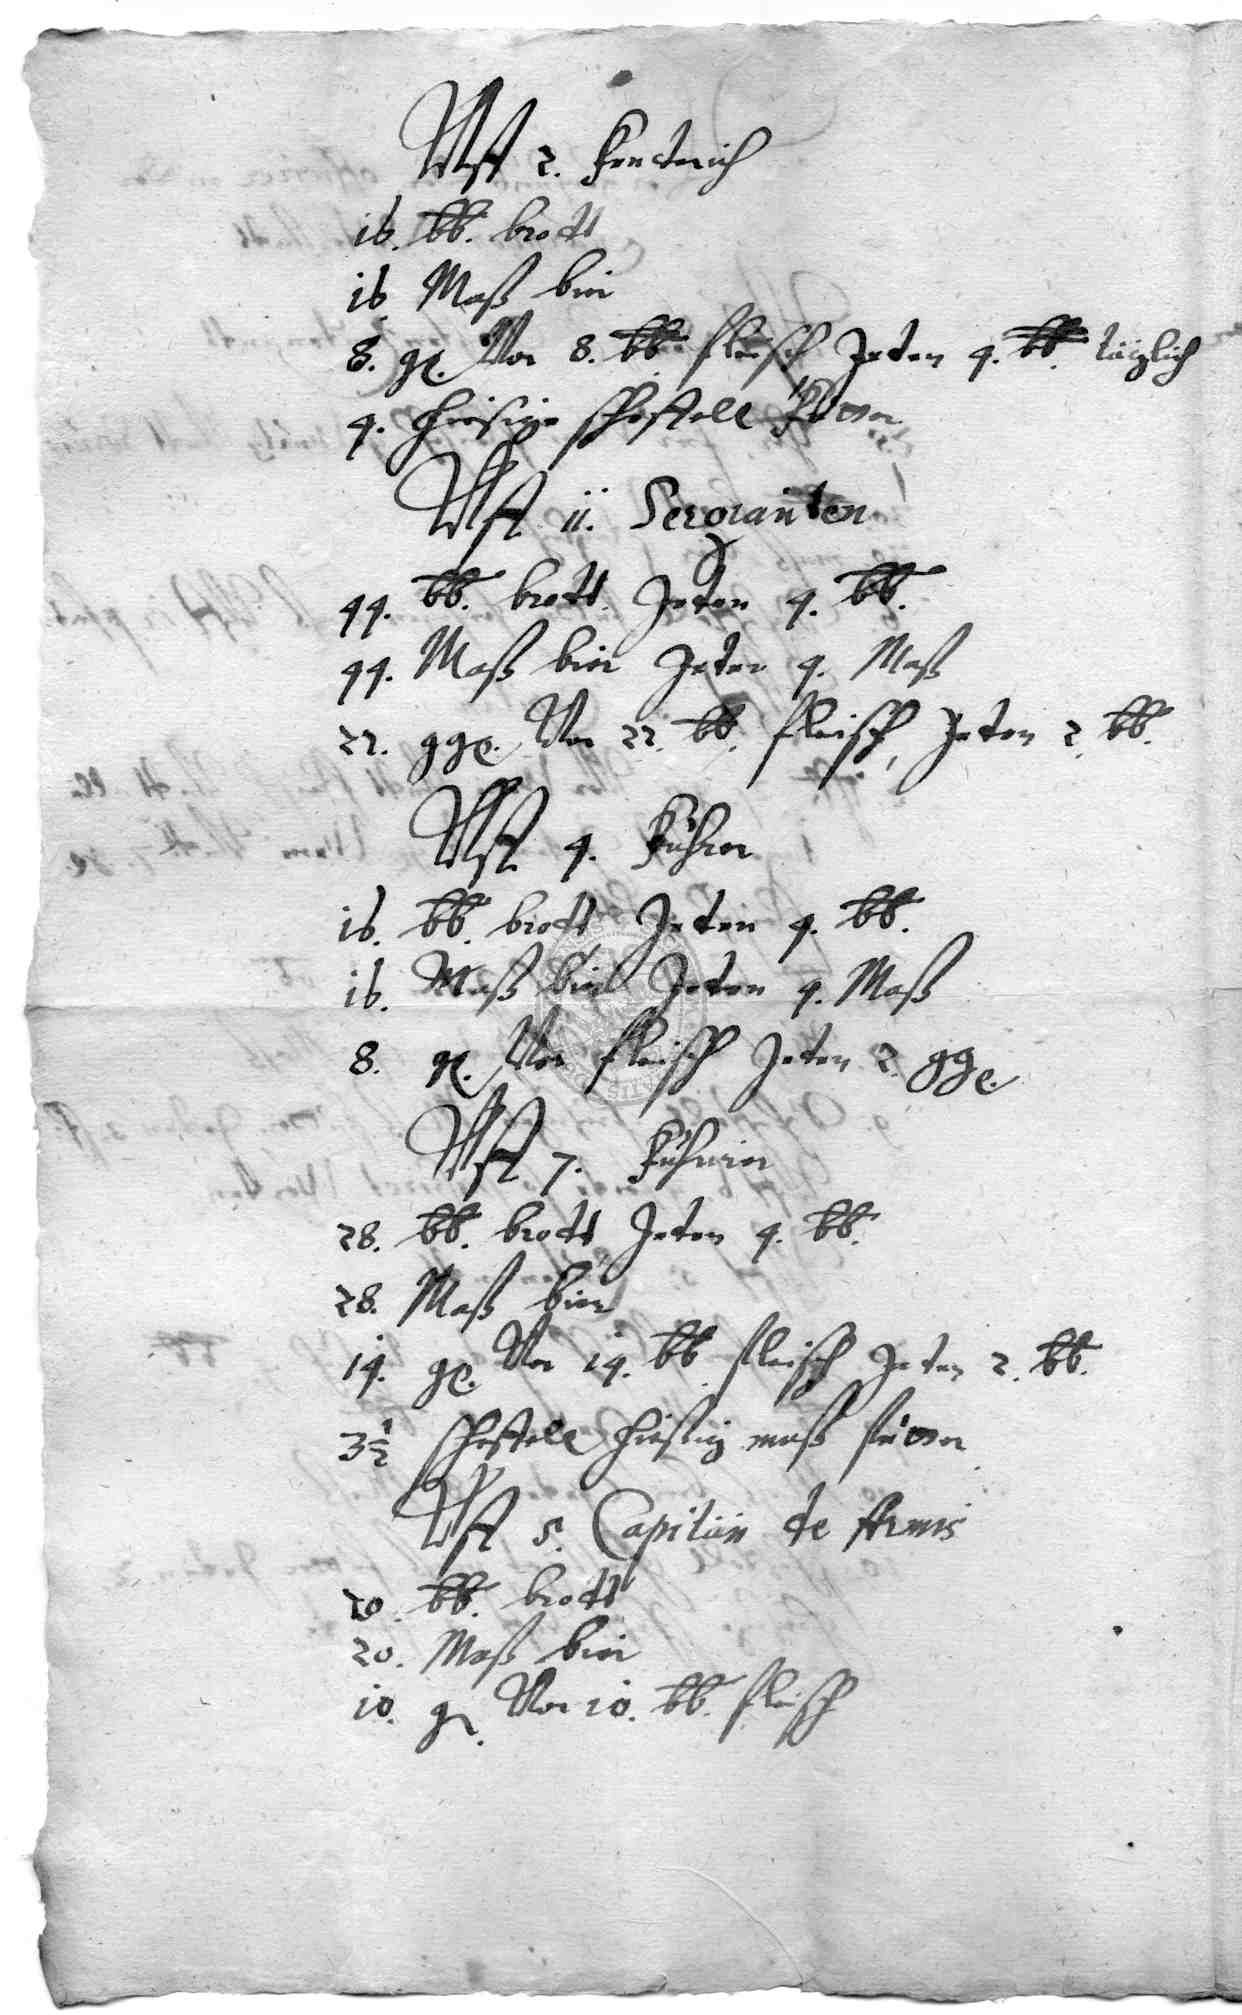 Vff 2. Fendterich
16. lb. brott
16 Maß bier
8. gl. Vor 8. lb fleisch Jeden 4. lb. täglich
4. hiesige scheffell
Vff 11. Sergianten
44. lb. brott Jeden 4. lb.
44. Maß bier Jeden 4. Maß
22. ggl. Vor 22. lb. fleisch, Jeden 2. lb.
Vff 4. Führer
16. lb. brott Jeden 4. lb.
16. Maß bier Jeden 4. Maß
8. gl. Vor fleisch Jeden 2. ggl.
Vff 7. Fuhrier
28. lb. brott Jeden 4. lb.
28. Maß bier
14. gl. Vor 14. lb fleisch Jeden 2. lb.
3½ scheffell hiesig maß
Vff 5. Capitäin de Armis
20 lb. brott
20. Maß bier
10. gl. Vor 10. lb. fleisch